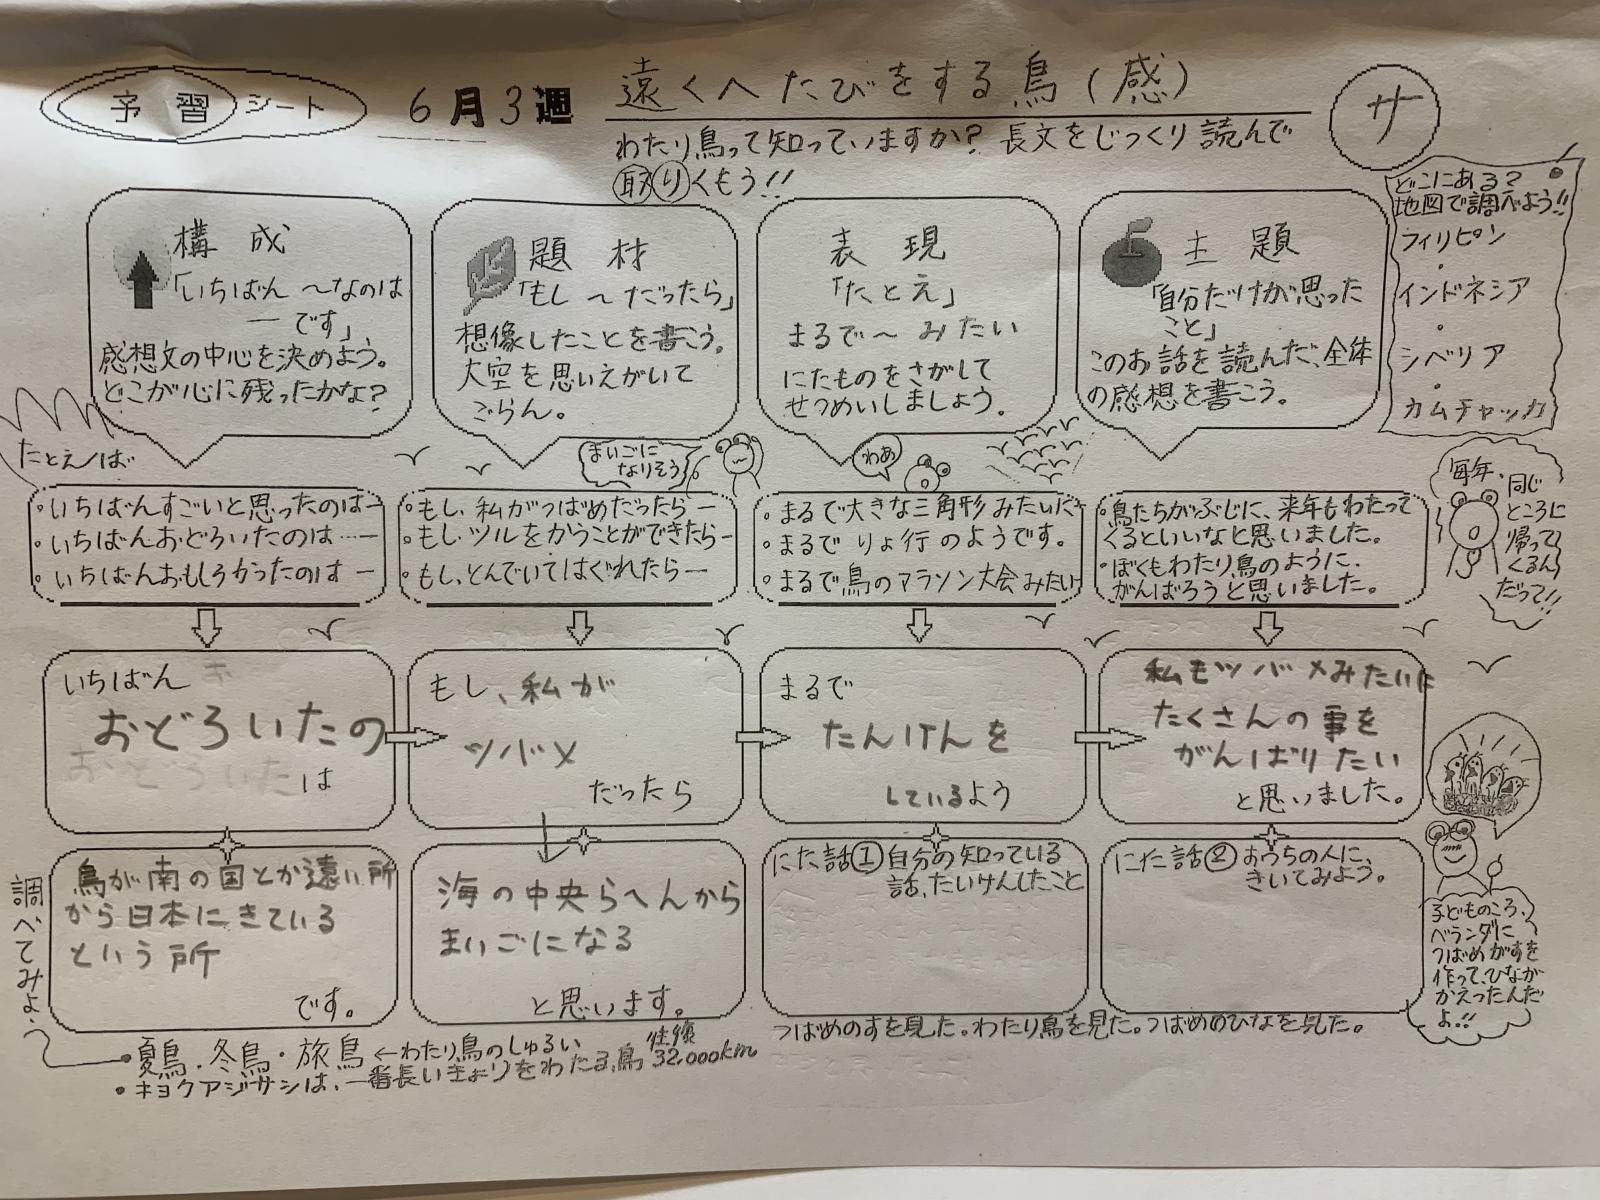 予習シート
6月3週
遠くへたびをする鳥(感)
サ
わたり鳥って知っていますか?長文をじっくり読んで
取りくもう!!
構成
「いちばん〜なのは
―です」
感想文の中心を決めよう。
どこが心に残ったかな?
題材
「もし〜だったら」
想像したことを書こう。
大空を思いえがいて
ごらん。
表現
「たとえ」
まるで〜みたい
にたものをさがして
せつめいしましょう。
主題
「自分だけが思った
こと」
このお話を読んだ、全体
の感想を書こう。
どこにある?
地図で調べよう!!
フィリピン
・
インドネシア
・
シベリア
・
カムチャッカ
たとえば
・いちばんすごいと思ったのは―
・いちばんおどろいたのは…―
・いちばんおもしろかったのは―
まいごに
なりそう
・もし、私がつばめだったら―
・もし、ツルをかうことができたら―
・もし、とんでいてはぐれたら―
わあ
・まるで大きな三角形みたいだ
・まるでりょ行のようです。
・まるで鳥のマラソン大会みたい
・鳥たちがぶじに、来年もわたって
くるといいなと思いました。
・ぼくもわたり鳥のように、
がんばろうと思いました。
毎年、
同じ
ところに
帰って
くるん
だって!!
いちばん
おどろいたの
おどろいた
は
もし、私が
ツバメ
だったら
まるで
たんけんを
しているよう
私もツバメみたいに
たくさんの事を
がんばりたい
と思いました。
調べてみよう
鳥が南の国とか遠い所
から日本にきている
という所
です。
海の中央らへんから
まいごになる
と思います。
にた話①自分の知っている
話、たいけんしたこと
にた話②おうちの人に、
きいてみよう。
子どものころ、
ベランダに
つばめがすを
作って、ひなが
かえったんだ
よ!!
つばめのすを見た。わたり鳥を見た。つばめのひなを見た。
・夏鳥・冬鳥・旅鳥←わたり鳥のしゅるい
・キョクアジサシは、一番長いきょりをわたる鳥
往復
32,000km